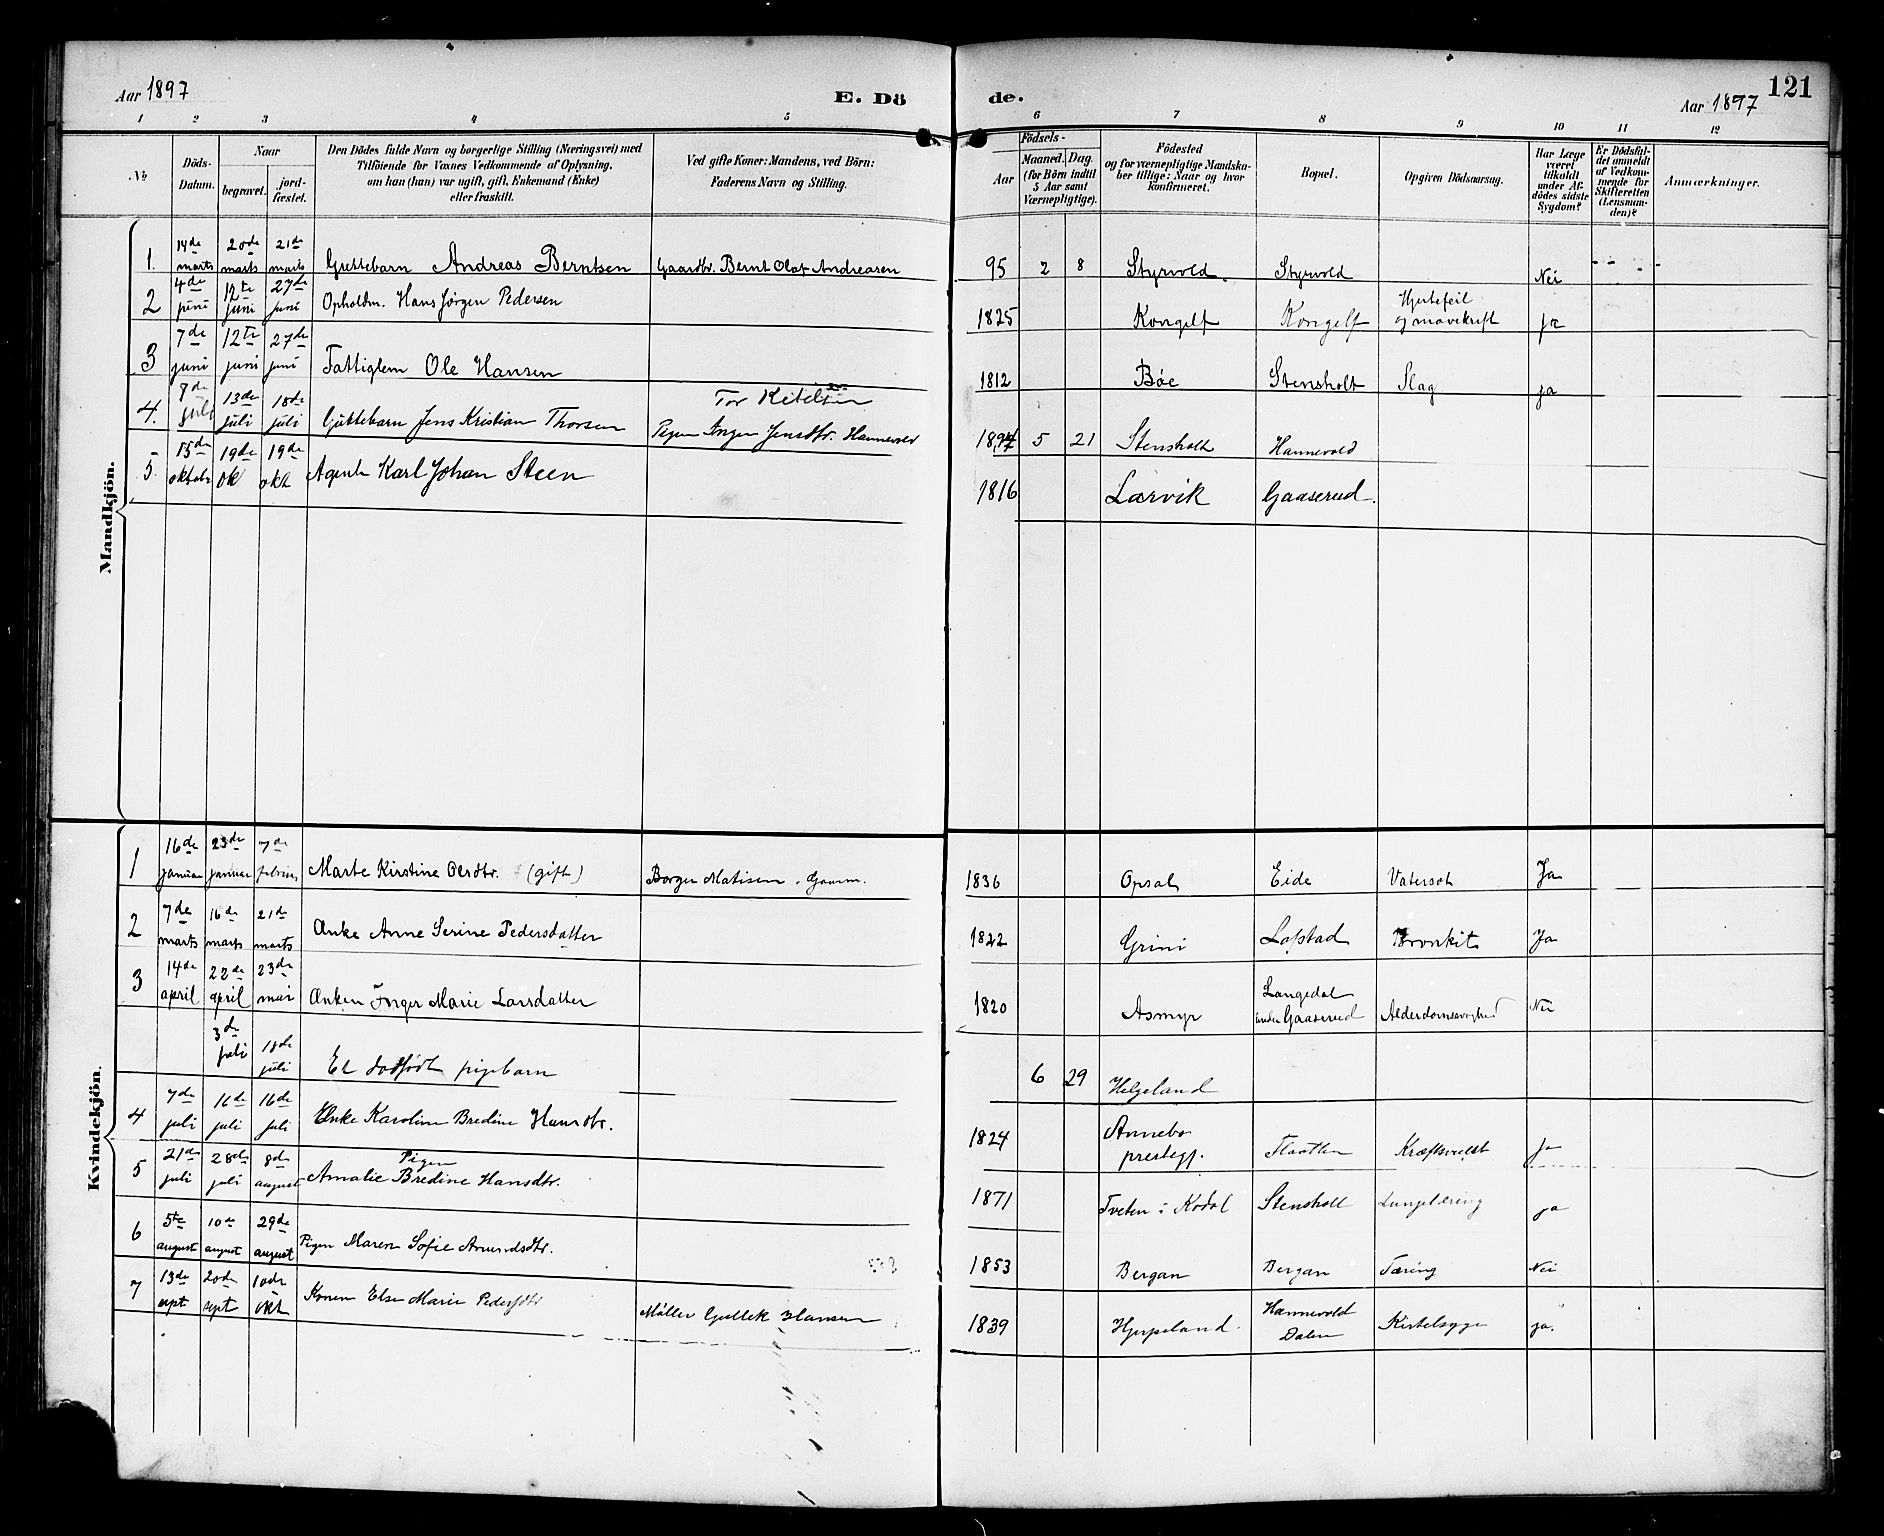 Aar 1897
E. Dö
de.
Aar 1897
121
1 2 3 4 5 6 7 8 9 10 11 12
No
Döds-
Datum.
Naar
begravet.
jord-
fæstet.
Den Dödes fulde Navn og borgerlige Stilling (Næringsvei) med
Tilföiende for Voxnes Vedkommende af Oplysning,
om han (hun) var ugift, gift, Enkemand (Enke)
eller fraskilt.
Ved gifte Koner: Mandens, ved Börn:
Faderens Navn og Stilling.
Födsels-
Aar
Maaned. Dag.
(for Börn indtil
5 Aar samt
Værnepligtige).
Födested
og for værnepligtige Mandska-
ber tillige: Naar og hvor
konfirmeret.
Bopæl.
Opgiven Dödsaarsag.
Har Læge
været
tilkaldt
under Af-
dödes sidste
Sygdom?
Er Dödsfal-
det anmeldt
af Vedkom-
mende for
Skifteretten
(Lensman-
den)?
Anmærkninger.
Mandkjön.
1. 14de marts 20de marts 21de marts Guttebarn Andreas Berntsen Gaardbr. Bernt Olaf Andreasen 95 2 8 Styrvold Styrvold Nei
2 4de juni 12te juni 27de juni Opholdm. Hans Jørgen Pedersen 1825 Kongelf Kongelf Hjertefeil og mavekræft ja
3 7de juni 12te juni 27de juni Fattiglem Ole Hansen 1812 Bøe Stensholt Slag ja
4. 8de juli 13de juli 18de juli Guttebarn Jens Kristian Thorsen Tor Ketilsen
Pigen Inger Jensdtr. Hannevold 1897 5 21 Stensholt Hannevold
5. 15de oktobr 19de ok 19de okt Agent Karl Johan Steen 1816 Larvik Gaaserud.
Kvindekjön.
1 16de januar 23de januar 7de februar Marte Kirstine Olsdtr. (gift) Borger Matisen, Gaarm. 1836 Opsal Eide Vatersot Ja
2 7de marts 16de marts 21de marts Enke Anne Serine Pedersdatter 1822 Grini Løpstad Bronkit Ja
3 14de april 22de april 23de mai Enken Inger Marie Larsdatter 1820 Asmyr Langedal
under Gaaserud Alderdomssvaghed Nei
3de juli 18de juli Et dødfødt pigebarn 6 29 Helgeland
4 7de juli 16de juli 16de juli Enke Karoline Bredine Hansdtr. 1824 Annebo
prestegj. Flaatten Kræftsvulst ja
5 21de juli 28de juli 8de august Pigen
Amalie Bredine Hansdtr. 1871 Tveten i Kodal Stensholt Lungetæring ja
6 5te august 10de august 29de august Pigen Maren Sofie Amundsdtr. 1853 Bergan Bergan Tæring Nei
7 13de sept 20de sept 10de okt Konen Else Marie Pedersdtr Møller Gullek Hansen 1839 Hjerpeland. Hannevold
Dalen Kirtelsyge ja.